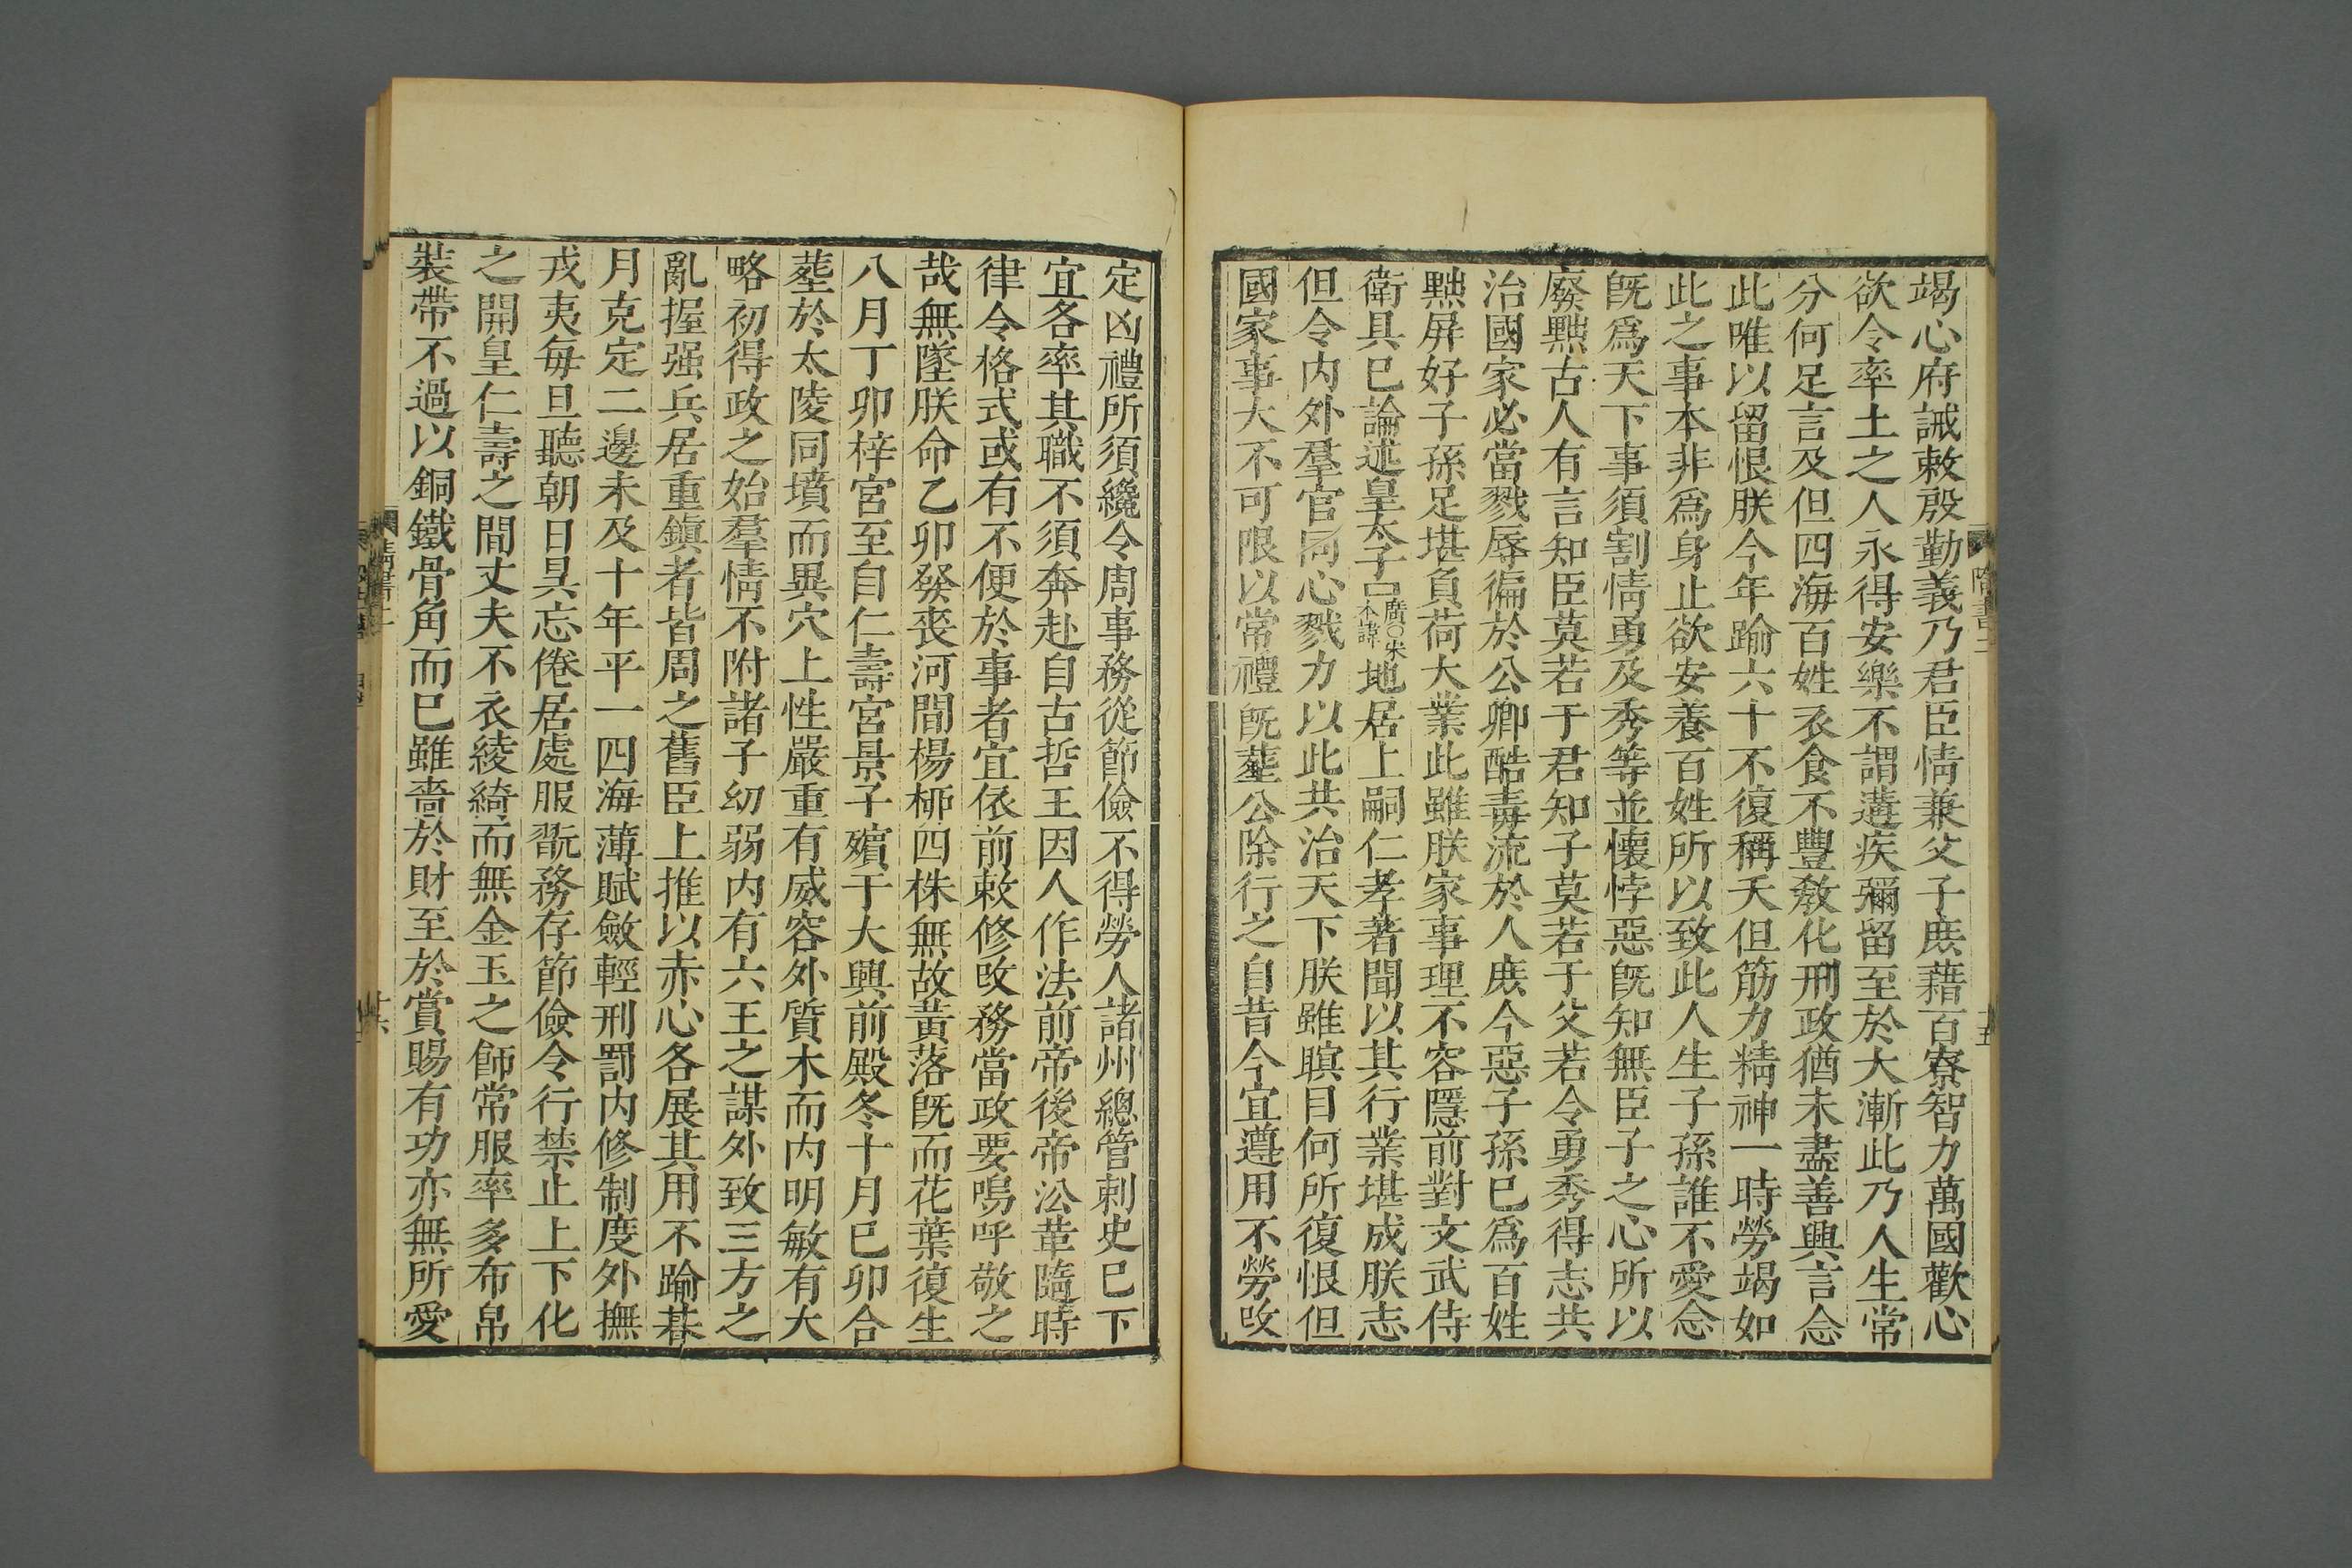 竭心府誡敕殷勤義乃君臣情兼父子庶藉百寮智力萬國歡心
欲令率土之人永得安樂不謂遘疾彌留至於大漸此乃人生常
分何足言及但四海百姓衣食不豐敎化刑政猶未盡善興言念
此唯以留恨朕今年踰六十不復稱夭但筋力精神一時勞竭如
此之事本非爲身止欲安養百姓所以致此人生子孫誰不愛念
旣爲天下事須割情勇及秀等並懷悖惡旣知無臣子之心所以
廢黜古人有言知臣莫若于君知子莫若于父若令勇秀得志共
治國家必當戮辱徧於公卿酷毒流於人庶今惡子孫已爲百姓
黜屏好子孫足堪負荷大業此雖朕家事理不容隱前對文武侍
衛具已論述皇太子廣○宋本諱地居上嗣仁孝著聞以其行業堪成朕志
但令內外羣官同心戮力以此共治天下朕雖瞑目何所復恨但
國家事大不可限以常禮旣葬公除行之自昔今宜遵用不勞改
隋書二
五
定凶禮所須纔令周事務從節儉不得勞人諸州總管刺史已下
宜各率其職不須奔赴自古哲王因人作法前帝後帝沿革隨時
律令格式或有不便於事者宜依前敕修改務當政要嗚呼敬之
哉無墜朕命乙卯發喪河間楊柳四株無故黃落旣而花葉復生
八月丁卯梓宮至自仁壽宮景子殯于大興前殿冬十月己卯合
葬於太陵同墳而異穴上性嚴重有威容外質木而內明敏有大
略初得政之始羣情不附諸子幼弱內有六王之謀外致三方之
亂握强兵居重鎭者皆周之舊臣上推以赤心各展其用不踰朞
月克定三邊未及十年平一四海薄賦斂輕刑罰內修制度外撫
戎夷每旦聽朝日昃忘倦居處服翫務存節儉令行禁止上下化
之開皇仁壽之間丈夫不衣綾綺而無金玉之飾常服率多布帛
裝帶不過以銅鐵骨角而已雖嗇於財至於賞賜有功亦無所愛
隋書二